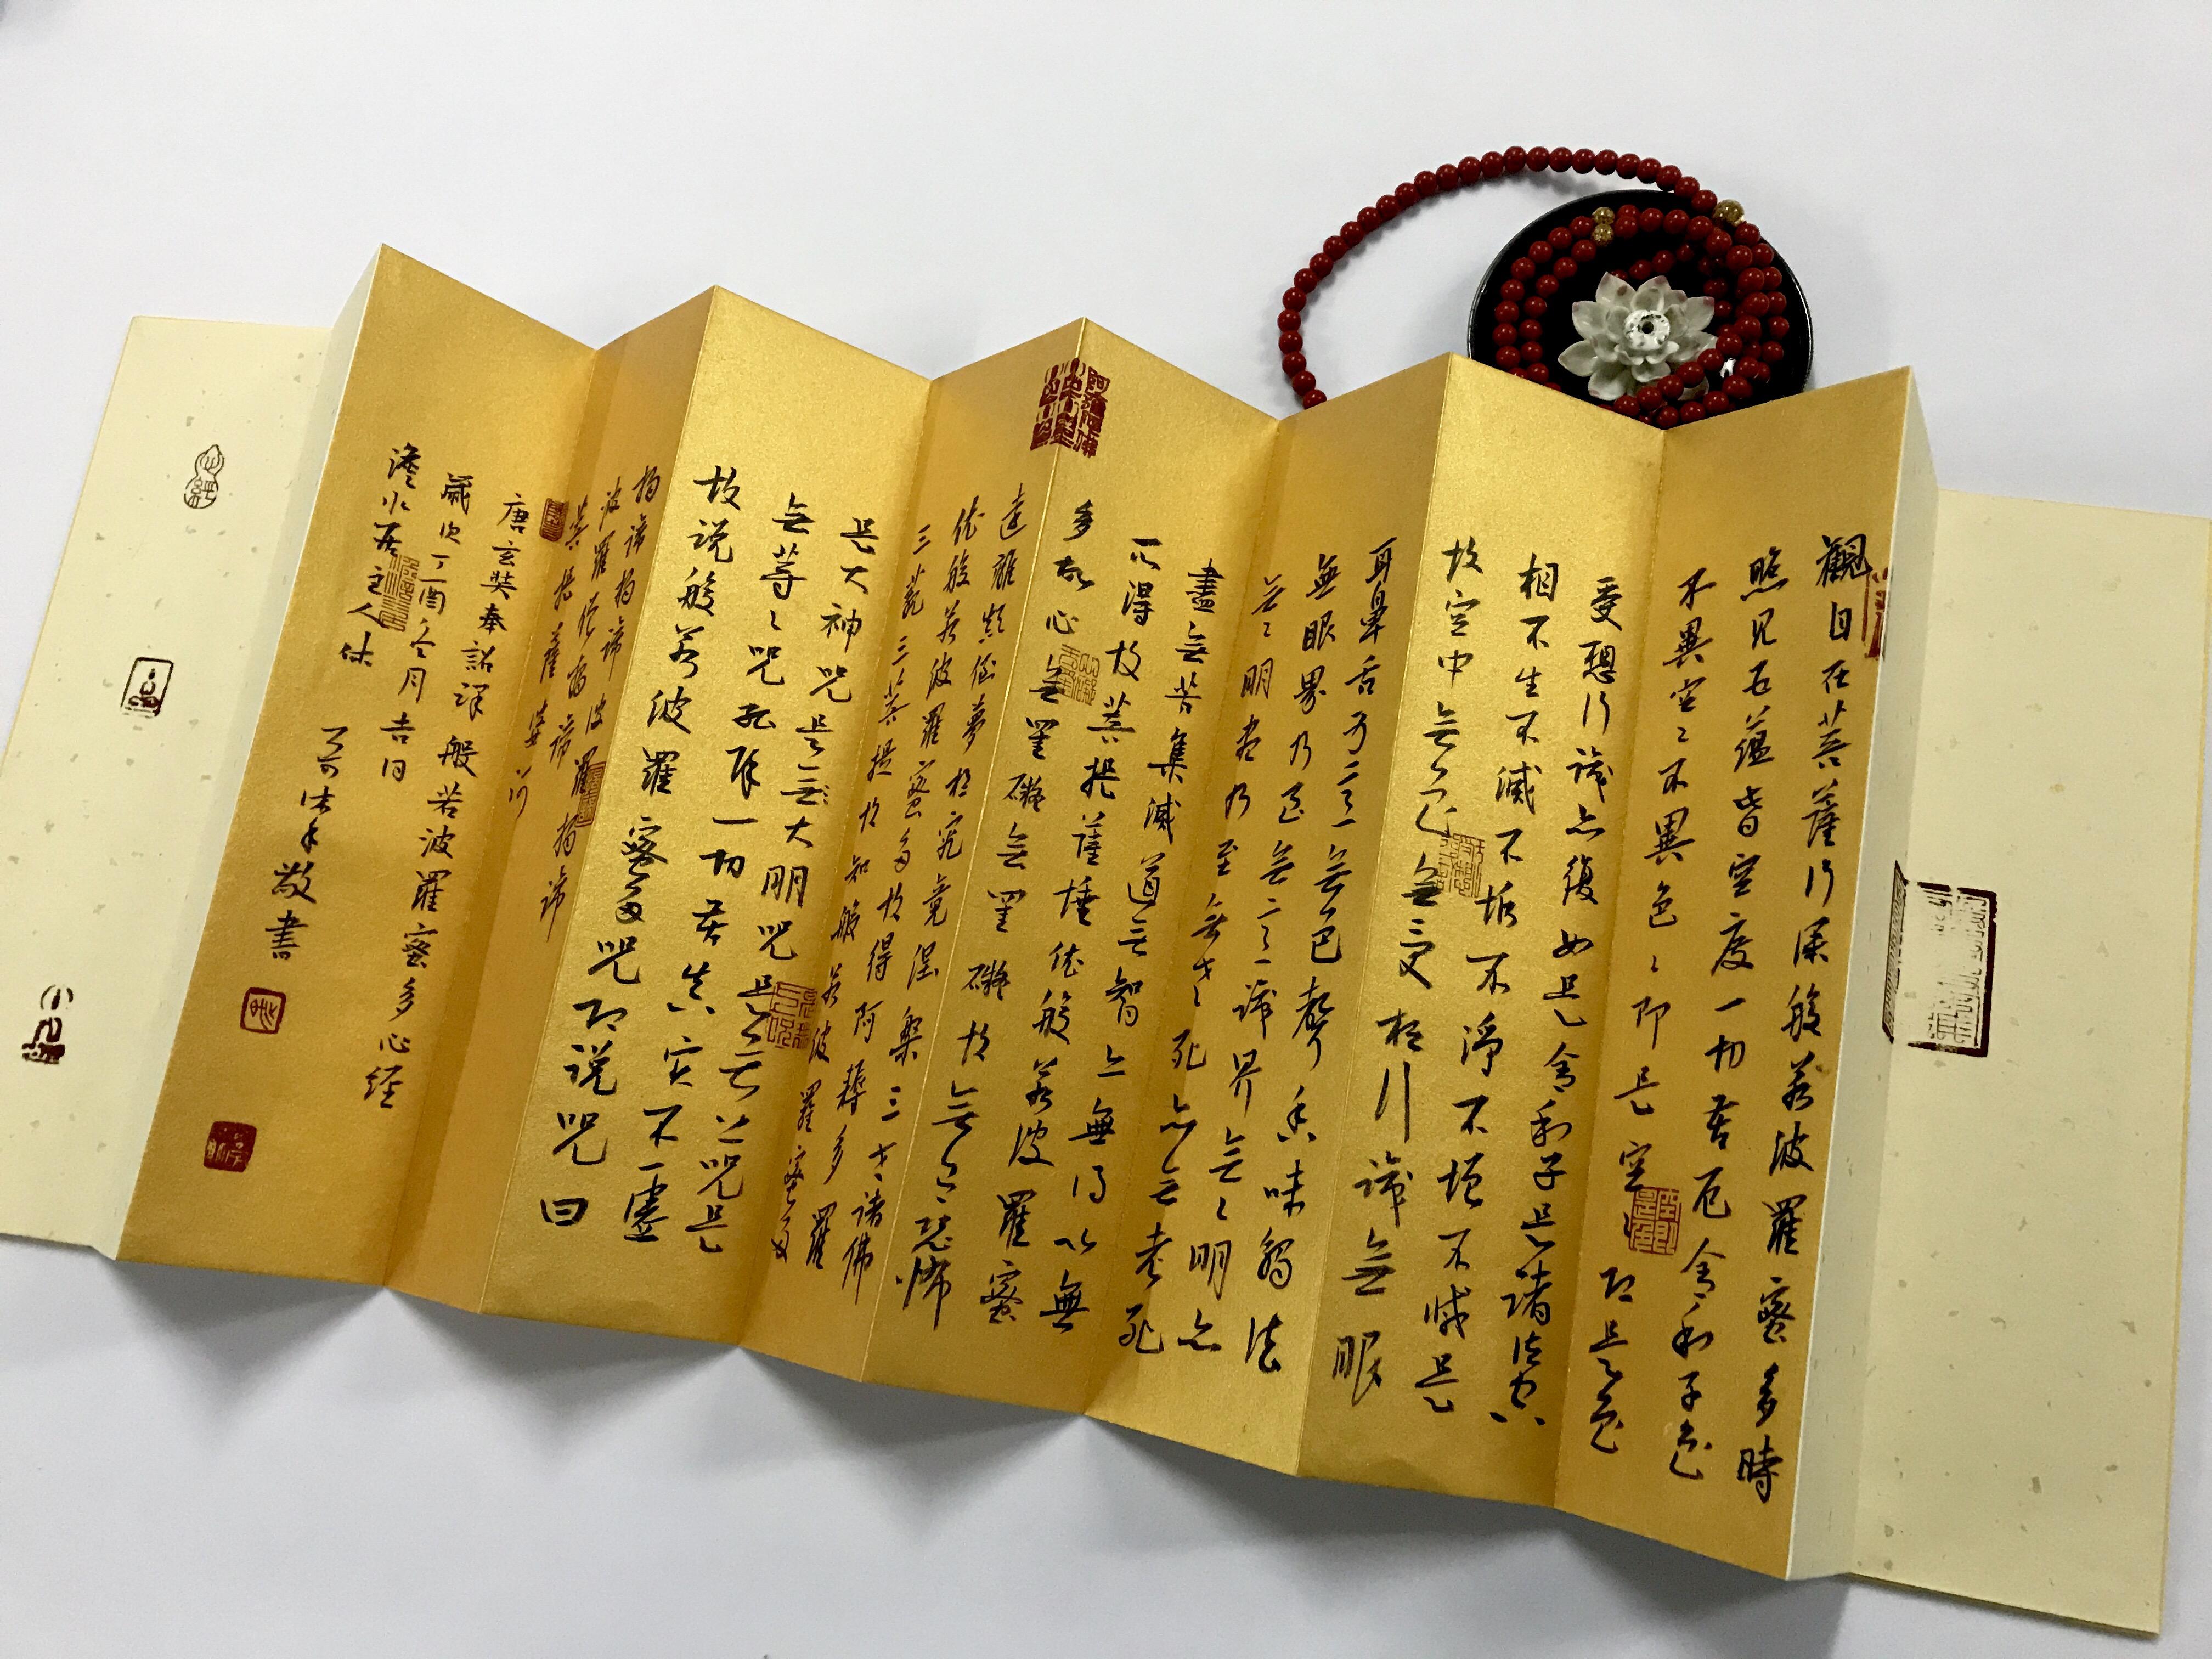 觀自在菩薩行深般若波羅蜜多時
照見五蘊皆空度一切苦厄舍利子色
不異空〻不異色〻即是空〻即是色
受想行識亦復如是舍利子是諸法空
相不生不滅不垢不淨不增不減是
故空中無色無受想行識無眼
耳鼻舌身意無色聲香味觸法
無眼界乃至無意識界無〻明亦
無〻明盡乃至無老死亦無老死
盡無苦集滅道無智亦無得以無
所得故菩提薩埵依般若波羅蜜
多故心無罣礙無罣礙故無有恐怖
遠離顛倒夢想究竟涅槃三世諸佛
依般若波羅蜜多故得阿耨多羅
三藐三菩提故知般若波羅蜜多
是大神咒是無大明咒是無上咒是
無等〻咒能除一切苦真實不虛
故說般若波羅蜜多咒即說咒曰
揭諦揭諦波羅揭諦
波羅僧揭諦
菩提薩婆訶
唐玄奘奉詔譯般若波羅蜜多心經
歲次丁酉冬月吉日
居主人休
敬書
阿彌陀佛
心經